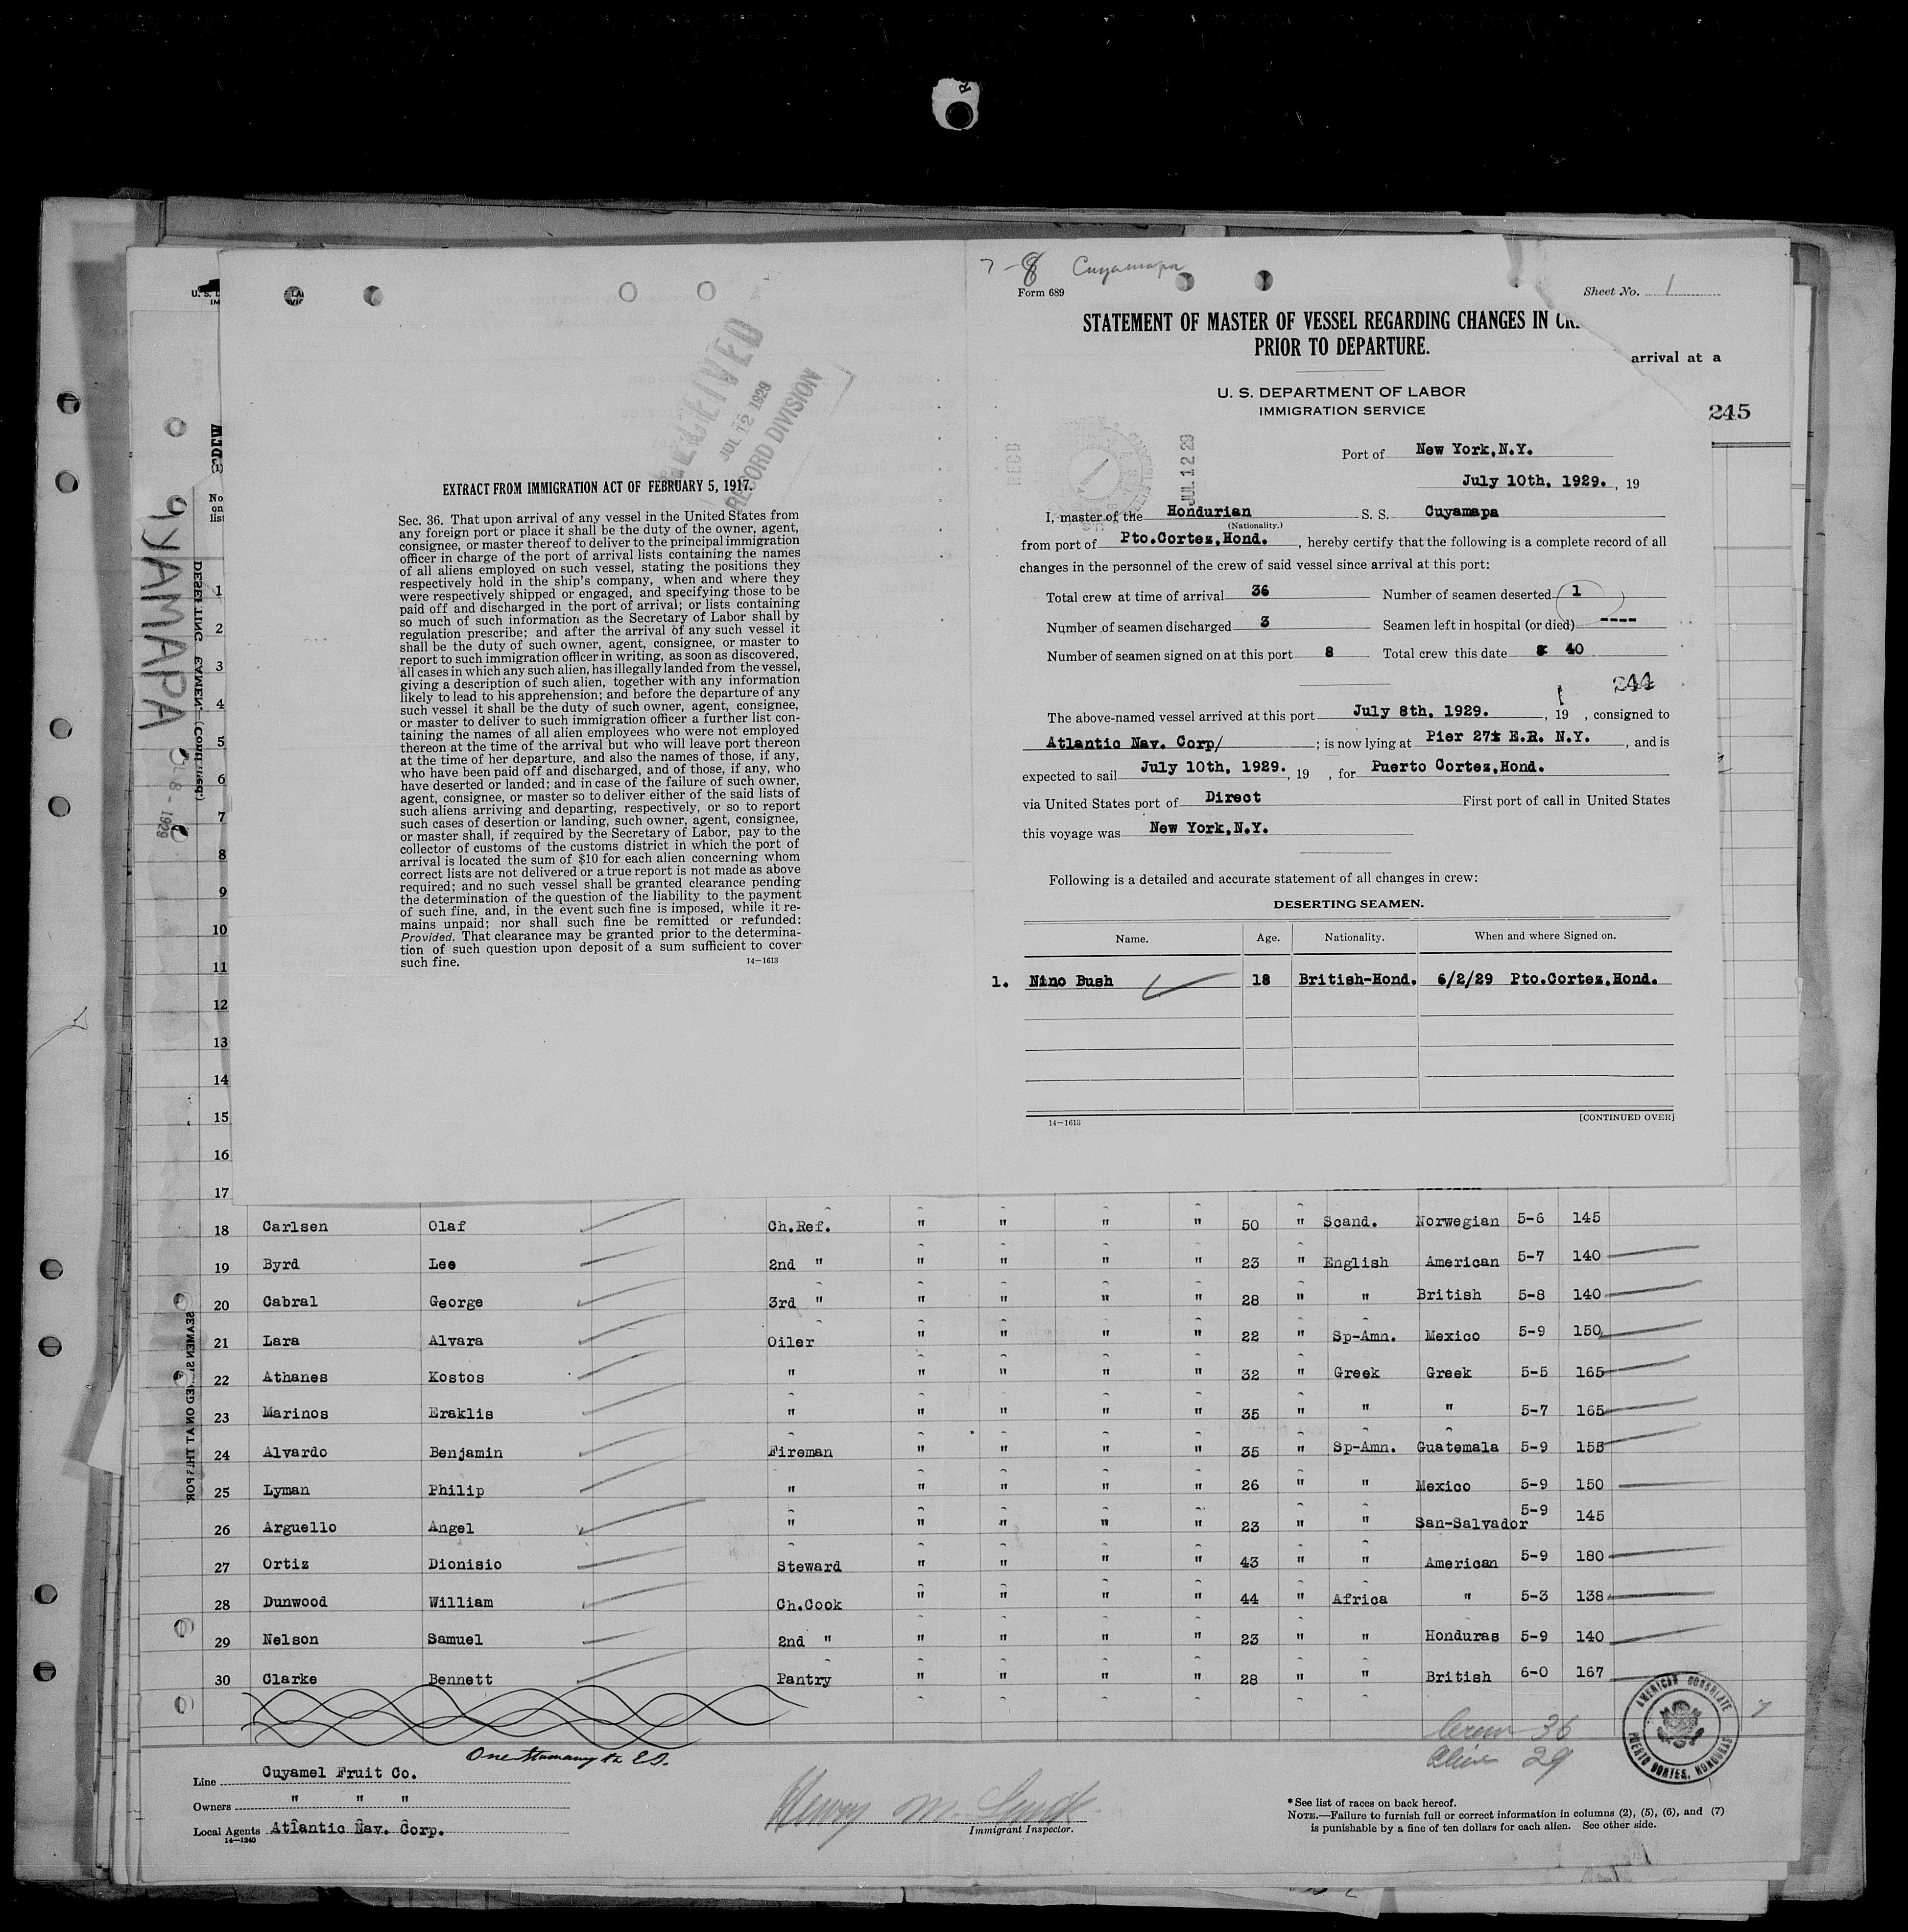 7-8 Cuyamapa
Form 689
Sheet No. 1
STATEMENT OF MASTER OF VESSEL REGARDING CHANGES IN
PRIOR TO DEPARTURE.
arrival at a
U. S. DEPARTMENT OF LABOR
IMMIGRATION SERVICE
245
Port of New York,N.Y.
July 10th, 1929. , 19
I, master of the Hondurian S. S. Cuyamapa
(Nationality.)
from port of Pto.Cortez,Hond. , hereby certify that the following is a complete record of all
changes in the personnel of the crew of said vessel since arrival at this port:
Total crew at time of arrival 36 Number of seamen deserted 1
Number of seamen discharged 3 Seamen left in hospital (or died) ----
Number of seamen signed on at this port 8 Total crew this date 40
244
The above-named vessel arrived at this port July 8th, 1929. , 19 , consigned to
Atlantic Nav. Corp/ ; is now lying at Pier 27 E.R. N.Y. , and is
expected to sail July 10th, 1929. , 19 , for Puerto Cortez,Hond.
via United States port of Direct First port of call in United States
this voyage was New York,N.Y.
Following is a detailed and accurate statement of all changes in crew:
DESERTING SEAMEN.
Name. Age. Nationality. When and where Signed on.
1. Nino Bush 18 British-Hond. 6/2/29 Pto.Cortez,Hond.
14—1613
[CONTINUED OVER]
RECEIVED
JUL 12 1929
RECORD DIVISION
RECD
JUL 12 29
EXTRACT FROM IMMIGRATION ACT OF FEBRUARY 5, 1917.
Sec. 36. That upon arrival of any vessel in the United States from
any foreign port or place it shall be the duty of the owner, agent,
consignee, or master thereof to deliver to the principal immigration
officer in charge of the port of arrival lists containing the names
of all aliens employed on such vessel, stating the positions they
respectively hold in the ship's company, when and where they
were respectively shipped or engaged, and specifying those to be
paid off and discharged in the port of arrival; or lists containing
so much of such information as the Secretary of Labor shall by
regulation prescribe; and after the arrival of any such vessel it
shall be the duty of such owner, agent, consignee, or master to
report to such immigration officer in writing, as soon as discovered,
all cases in which any such alien, has illegally landed from the vessel,
giving a description of such alien, together with any information
likely to lead to his apprehension; and before the departure of any
such vessel it shall be the duty of such owner, agent, consignee,
or master to deliver to such immigration officer a further list con-
taining the names of all alien employees who were not employed
thereon at the time of the arrival but who will leave port thereon
at the time of her departure, and also the names of those, if any,
who have been paid off and discharged, and of those, if any, who
have deserted or landed; and in case of the failure of such owner,
agent, consignee, or master so to deliver either of the said lists of
such aliens arriving and departing, respectively, or so to report
such cases of desertion or landing, such owner, agent, consignee,
or master shall, if required by the Secretary of Labor, pay to the
collector of customs of the customs district in which the port of
arrival is located the sum of $10 for each alien concerning whom
correct lists are not delivered or a true report is not made as above
required; and no such vessel shall be granted clearance pending
the determination of the question of the liability to the payment
of such fine, and, in the event such fine is imposed, while it re-
mains unpaid; nor shall such fine be remitted or refunded:
Provided. That clearance may be granted prior to the determina-
tion of such question upon deposit of a sum sufficient to cover
such fine.
14—1613
No
on
list
1
2
3
4
5
6
7
8
9
10
11
12
13
14
15
16
17
18 Carlsen Olaf Ch.Ref. " " " " 50 " Scand. Norwegian 5-6 145
19 Byrd Lee 2nd " " " " " 23 " English American 5-7 140
20 Cabral George 3rd " " " " " 28 " " British 5-8 140
21 Lara Alvara Oiler " " " " 22 " Sp-Amn. Mexico 5-9 150
22 Athanes Kostos " " " " " 32 " Greek Greek 5-5 165
23 Marinos Eraklis " " " " " 35 " " " 5-7 165
24 Alvardo Benjamin Fireman " " " " 35 " Sp-Amn. Guatemala 5-9 155
25 Lyman Philip " " " " " 26 " " Mexico 5-9 150
26 Arguello Angel " " " " " 23 " " San-Salvador 5-9 145
27 Ortiz Dionisio Steward " " " " 43 " " American 5-9 180
28 Dunwood William Ch.Cook " " " " 44 " Africa " 5-3 138
29 Nelson Samuel 2nd " " " " " 23 " " Honduras 5-9 140
30 Clarke Bennett Pantry " " " " 28 " " British 6-0 167
Crew 36
Alien 29
AMERICAN CONSULATE
PUERTO CORTES, HONDURAS
Line Cuyamel Fruit Co.
Owners " " "
Local Agents Atlantic Nav. Corp.
14—1240
Immigrant Inspector.
* See list of races on back hereof.
NOTE.—Failure to furnish full or correct information in columns (2), (5), (6), and (7)
is punishable by a fine of ten dollars for each alien. See other side.